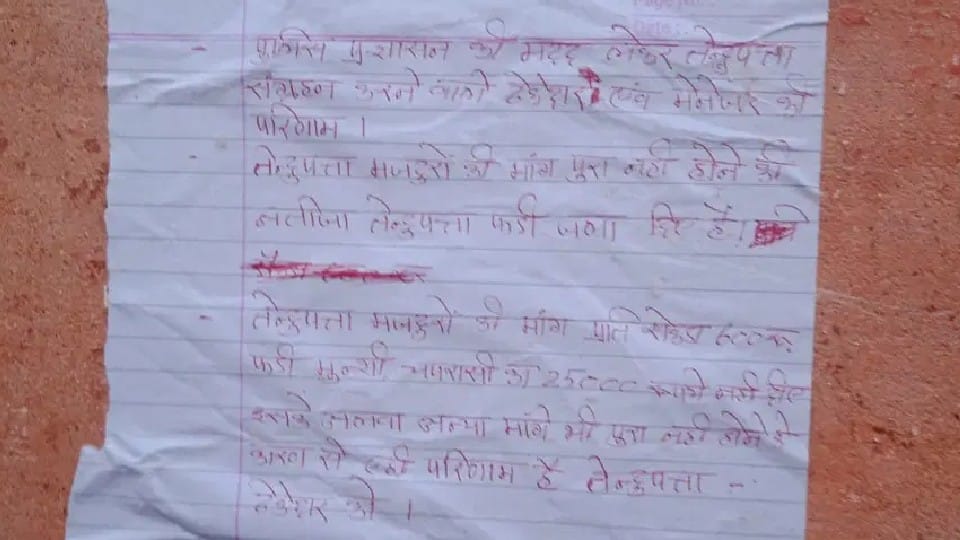 - पुलिस प्रशासन की मदद लेकर तेन्दुपत्ता
संग्रहन करने वाले ठेकेदारो एवं मेनेजर को
परिणाम ।
- तेन्दुपत्ता मजदुरों की मांग पुरा नही होने की
नतीजा तेन्दुपत्ता फडी जला दिए हैं।
- तेन्दुपत्ता मजदुरों की मांग प्रति सेकडा ६००रू.
फडी मुन्शी, चपरासी का 25000 रूपये नही दिए
इसके अलावा अन्या मांगे भी पुरा नही होने के
कारन से यही परिणाम है तेन्दुपत्ता -
ठेकेदार को ।